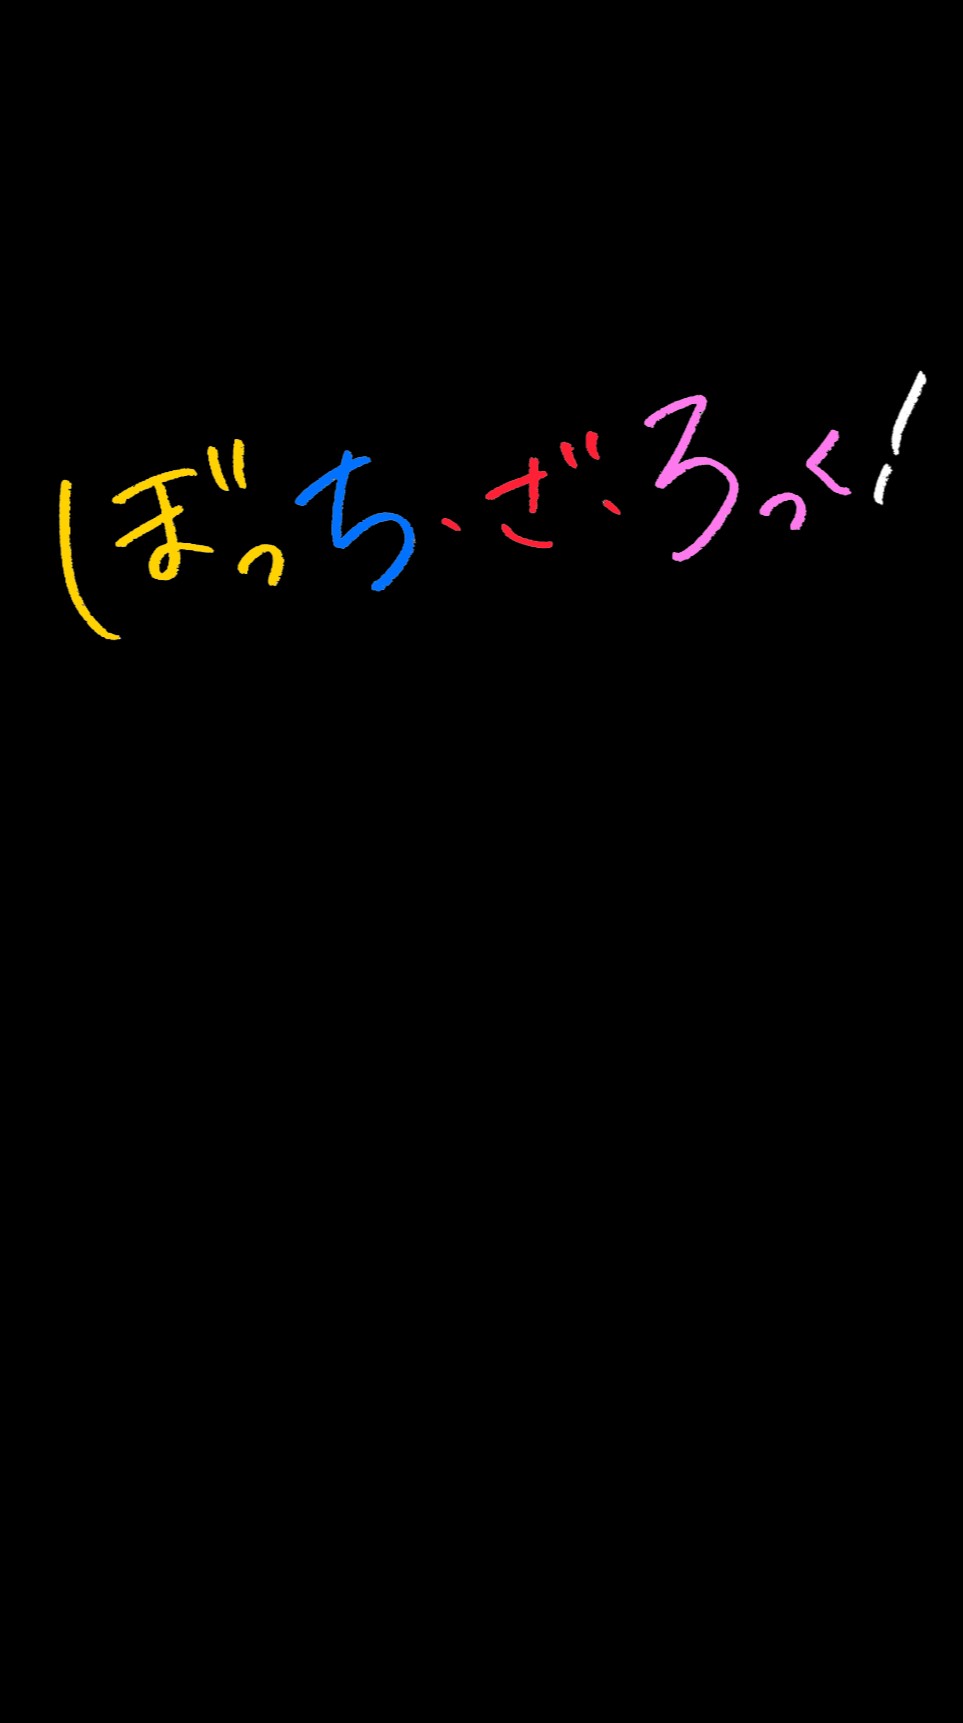 ぼっち・ざ・ろっく!